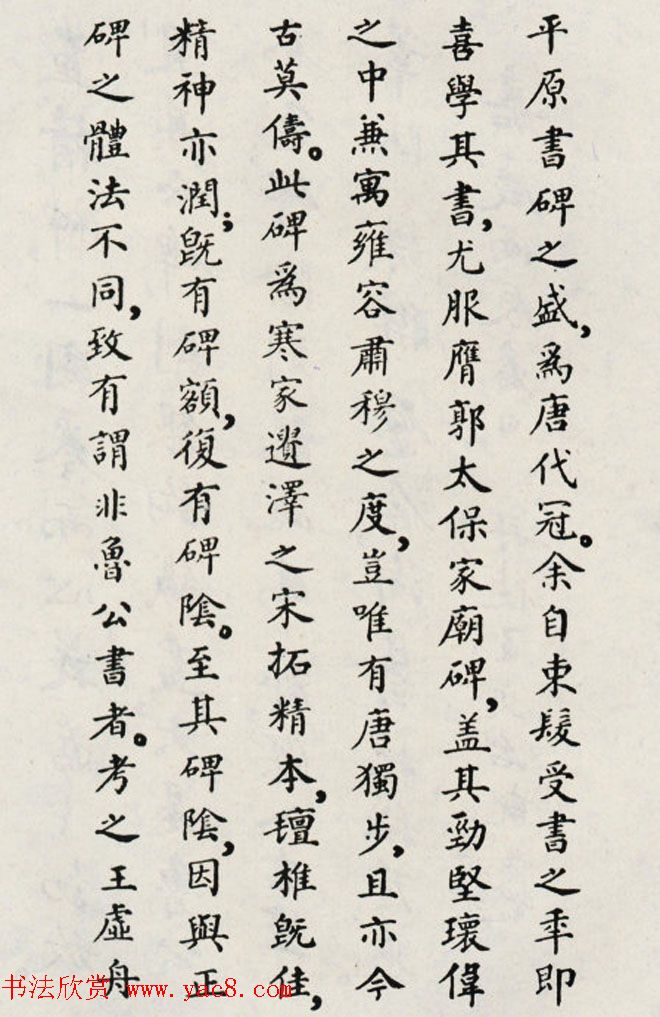 平原書碑之盛，爲唐代冠。余自束髮受書之秊即
喜學其書，尤服膺郭太保家廟碑，盖其勁堅瓌偉
之中兼寓雍容肅穆之度，豈唯有唐獨步，且亦今
古莫儔。此碑爲寒家遺澤之宋拓精本，氊椎既佳，
精神亦潤；既有碑額，復有碑陰。至其碑陰，因與正
碑之體法不同，致有謂非魯公書者。考之王虛舟
书法欣赏 www.yac8.com